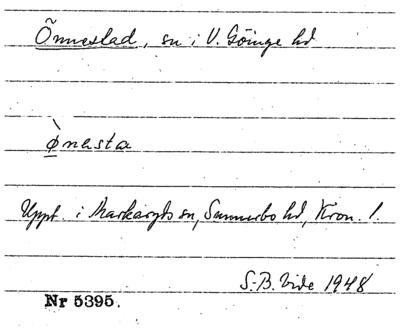 Õnnestad, sn i V. Göinge hd
ǿnesta
Uppt. i Markaryds sn, Sunnerbo hd, Kron. l.
S.-B. Vide 1948
Nr 5395.